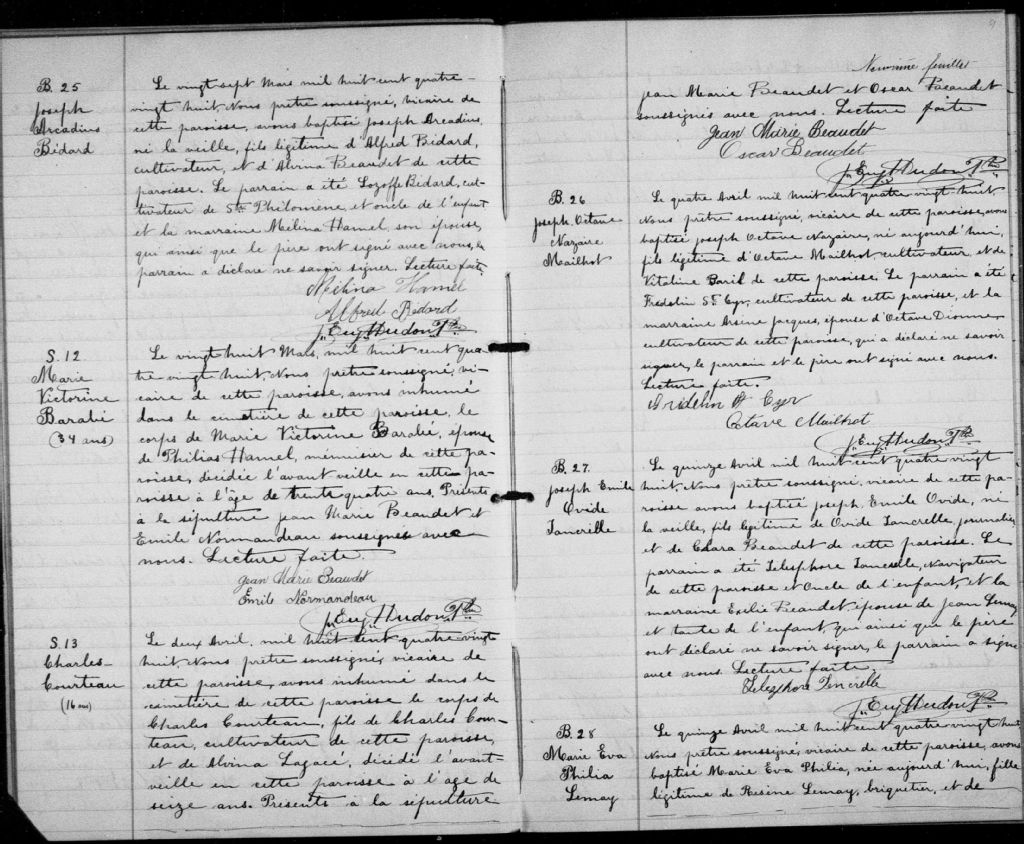 B. 25
Joseph
Arcadius
Bédard
Le vingt sept Mars mil huit cent quatre-
vingt huit. Nous prêtre soussigné, vicaire de
cette paroisse, avons baptisé Joseph Arcadius,
né la veille, fils légitime d'Alfred Bédard,
cultivateur, et d'Alvina Beaudet de cette
paroisse. Le parrain a été Lozoffe Bédard, cul-
tivateur de Ste Philomène, et oncle de l'enfant
et la marraine Mélina Hamel, son épouse,
qui ainsi que le père ont signé avec nous, le
parrain a déclaré ne savoir signer. Lecture faite.
Mélina Hamel
Alfred Bédard
J. Eug. Hudon Ptre
S. 12
Marie
Victorine
Barabé
(34 ans)
Le vingt huit Mars, mil huit cent qua-
tre-vingt huit. Nous prêtre soussigné, vi-
caire de cette paroisse, avons inhumé
dans le cimetière de cette paroisse, le
corps de Marie Victorine Barabé, épouse
de Philias Hamel, menuisier de cette pa-
roisse, décédée l'avant veille en cette pa-
roisse à l'âge de trente quatre ans. Présents
à la sépulture Jean Marie Beaudet et
Emile Normandeau soussignés avec
nous. Lecture faite.
Jean Marie Beaudet
Emile Normandeau
J. Eug. Hudon Ptre
S. 13
Charles
Courteau
(16 ans)
Le deux Avril, mil huit cent quatre vingt
huit. Nous prêtre soussigné, vicaire de
cette paroisse, avons inhumé dans le
cimetière de cette paroisse le corps de
Charles Courteau, fils de Charles Cour-
teau, cultivateur de cette paroisse,
et de Alvina Lagacé, décédé l'avant-
veille en cette paroisse à l'âge de
seize ans. Présents à la sépulture
9
Neuvième feuillet
Jean Marie Beaudet et Oscar Beaudet
soussignés avec nous. Lecture faite
Jean Marie Beaudet
Oscar Beaudet
J. Eug. Hudon Ptre
B. 26
Joseph Octave
Nazaire
Mailhot
Le quatre Avril mil huit cent quatre vingt huit
Nous prêtre soussigné, vicaire de cette paroisse, avons
baptisé Joseph Octave Nazaire, né aujourd'hui,
fils légitime d'Octave Mailhot cultivateur, et de
Vitaline Baril de cette paroisse. Le parrain a été
Fredolin St Cyr, cultivateur de cette paroisse, et la
marraine Arsine Jacques, épouse d'Octave Dionne
cultivateur de cette paroisse, qui a déclaré ne savoir
signer, le parrain et le père ont signé avec nous.
Lecture faite.
Fridolin St Cyr
Octave Mailhot
J. Eug. Hudon Ptre
B. 27.
Joseph Emile
Ovide
Tancrelle
Le quinze Avril mil huit cent quatre vingt
huit. Nous prêtre soussigné, vicaire de cette pa-
roisse avons baptisé Joseph, Emile Ovide, né
la veille, fils légitime de Ovide Tancrelle, journalier
et de Clara Beaudet de cette paroisse. Le
parrain a été Telesphore Tancrelle, Navigateur
de cette paroisse et Oncle de l'enfant, et la
marraine Exilie Beaudet épouse de Jean Lemay
et tante de l'enfant, qui ainsi que le père
ont déclaré ne savoir signer, le parrain a signé
avec nous. Lecture faite.
Telesphore Tencrelle
J. Eug. Hudon Ptre
B. 28
Marie Eva
Philia
Lemay
Le quinze Avril mil huit cent quatre vingt huit
Nous prêtre soussigné, vicaire de cette paroisse, avons
baptisé Marie Eva Philia, née aujourd'hui, fille
légitime de Onésime Lemay, briquetier, et de